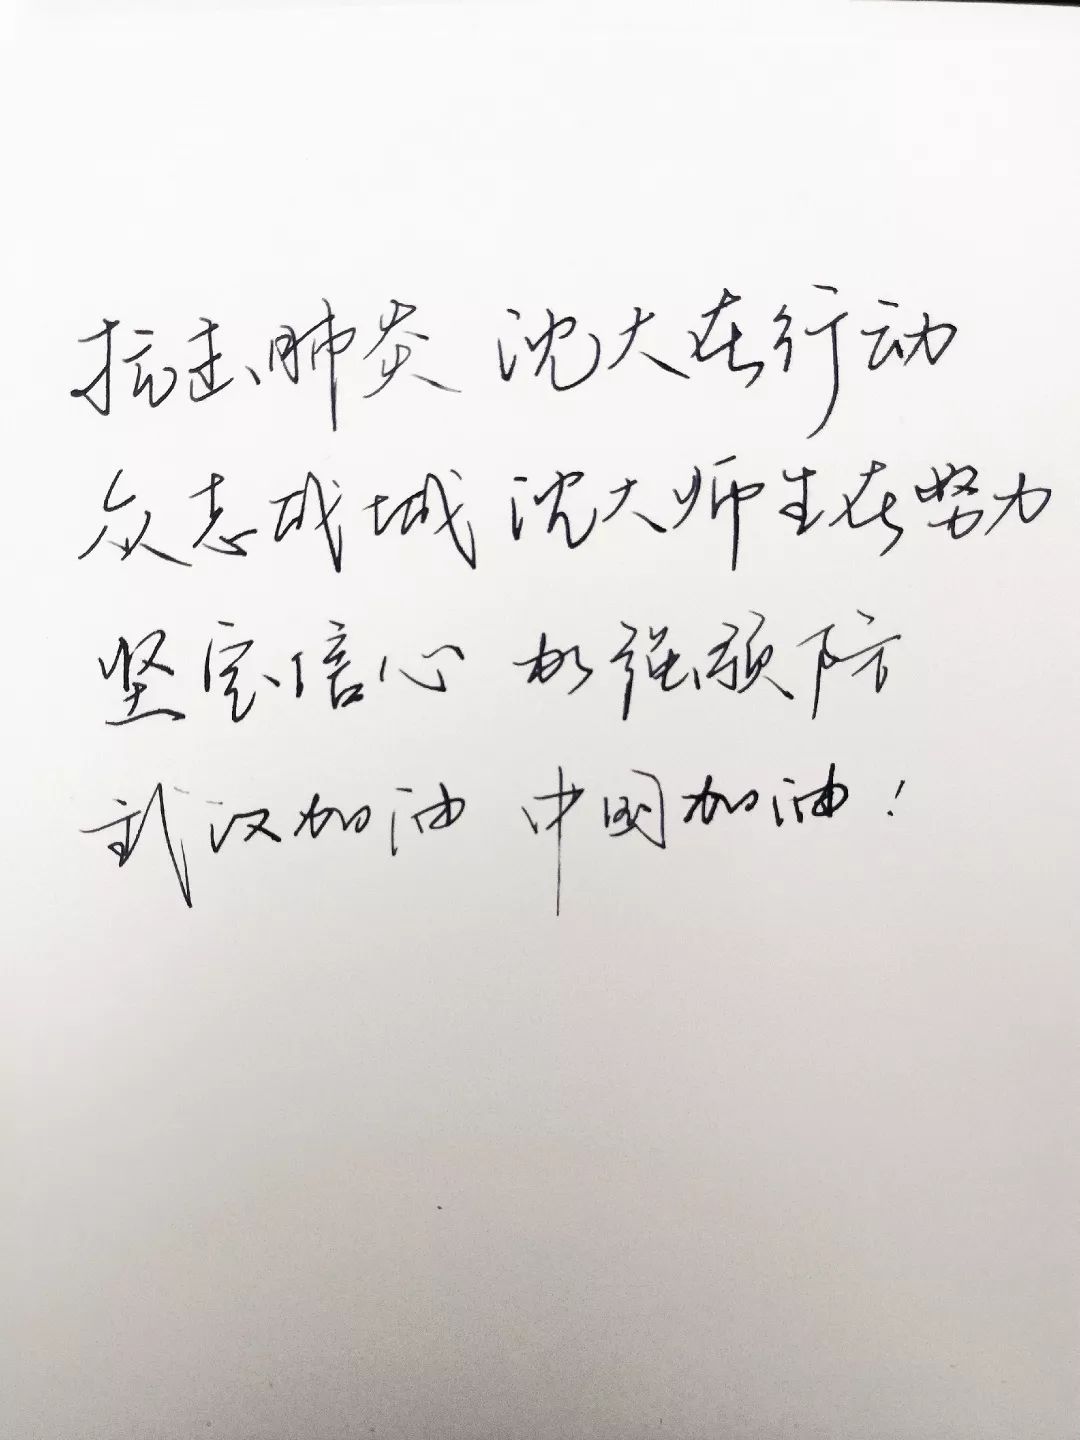 抗击肺炎 沈大在行动
众志成城 沈大师生在努力
坚定信心 加强预防
武汉加油 中国加油！